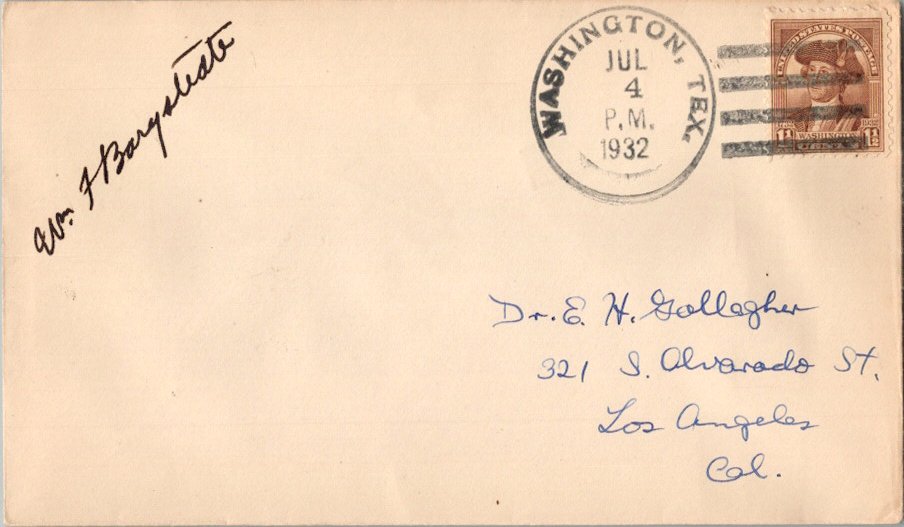 Wm. F Bargstedte
WASHINGTON, TEX.
JUL
4
P.M.
1932
UNITED STATES POSTAGE
WASHINGTON
1½ 1½
CENTS
Dr. E. H. Gallagher
321 S. Alvarado St.
Los Angeles
Cal.